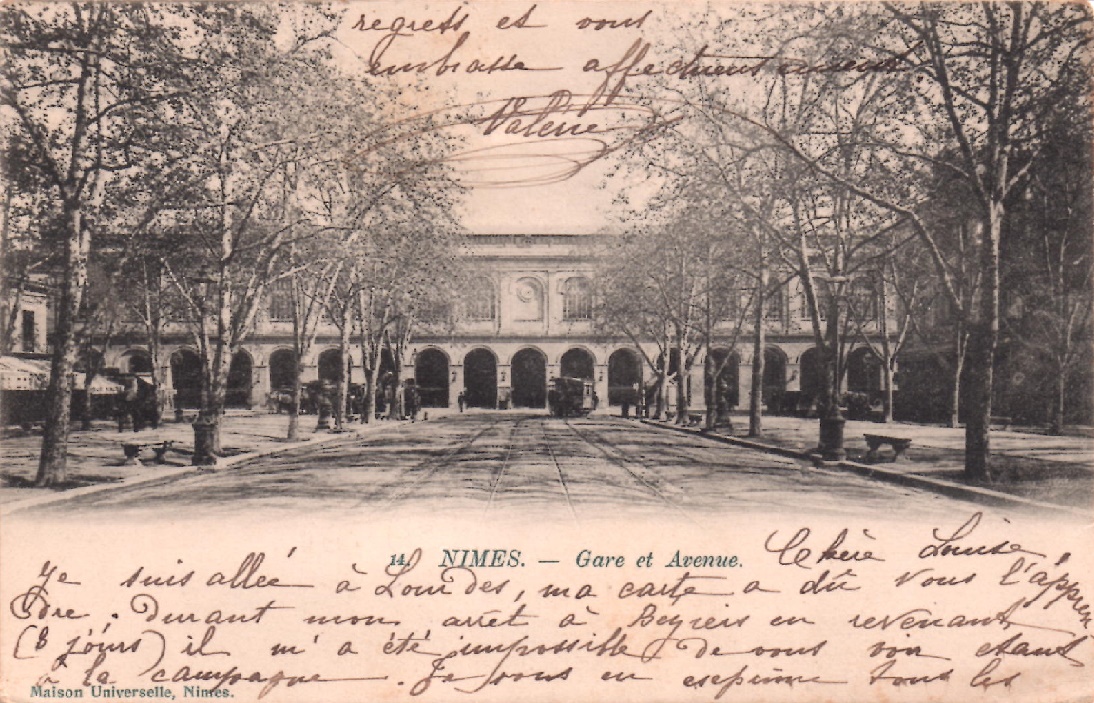 regrets et vous
embrasse affectueusement
Valérie
14 NIMES. — Gare et Avenue.
Chère Louise,
Je suis allée à Lourdes, ma carte a dû vous l'appren
dre. Durant mon arrêt à en revenant
(8 jours) il m'a été impossible de vous voir étant
à la campagne. Je vous en exprime tous les
Maison Universelle, Nimes.